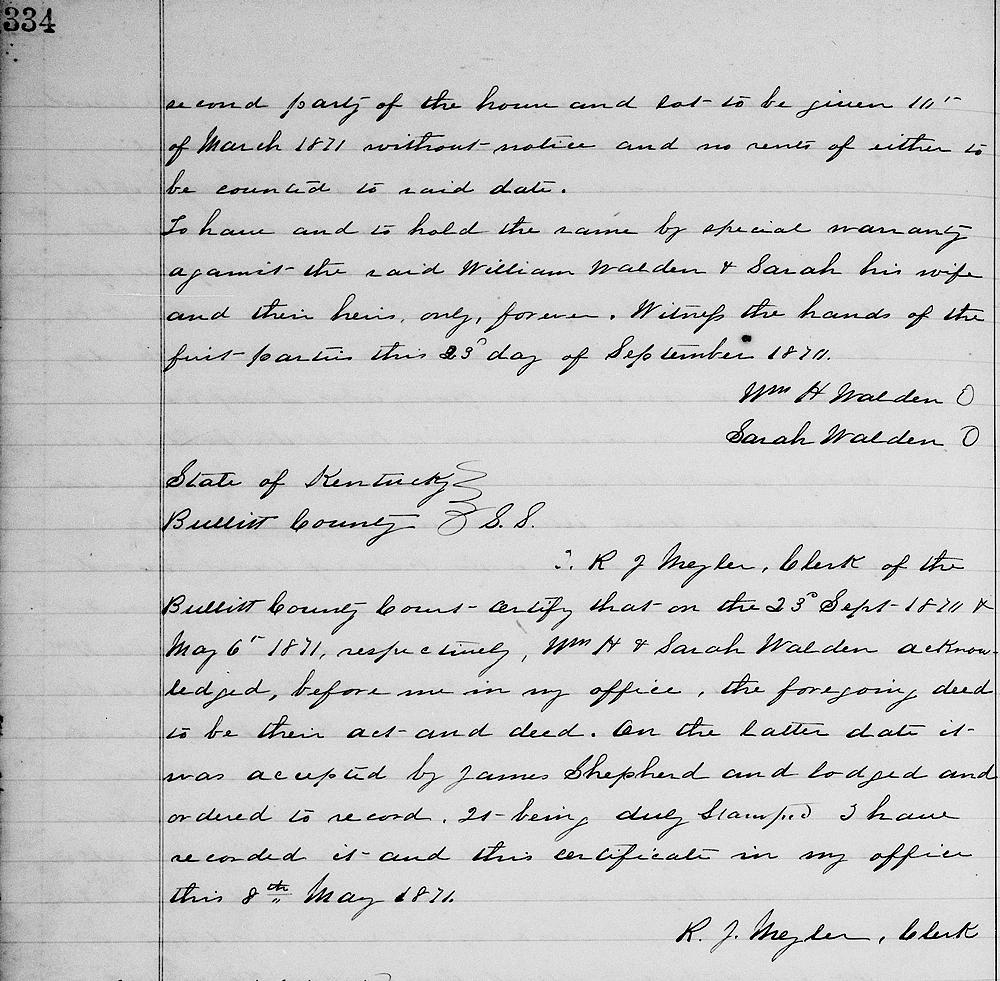 334
second party of the house and lot to be given 1st
of March 1871 without notice and no rents of either to
be counted to said date.
To have and to hold the same by special warranty
against the said William Walden & Sarah his wife
and their heirs, only, forever. Witness the hands of the
first parties this 23d day of September 1870.
Wm H Walden O
Sarah Walden O
State of Kentucky
Bullitt County S.S.
I. R J Meyler, Clerk of the
Bullitt County Court certify that on the 23d Sept 1870 &
May 6th 1871, respectively, Wm H & Sarah Walden acknow-
ledged, before me in my office, the foregoing deed
to be their act and deed. On the latter date it
was accepted by James Shepherd and lodged and
ordered to record. It being duly Stamped I have
recorded it and this certificate in my office
this 8th May 1871.
R. J. Meyler, Clerk